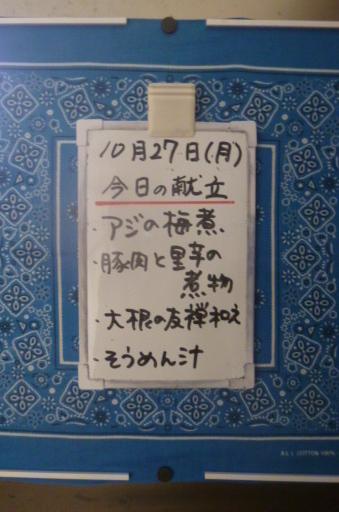 10月27日(月)
今日の献立
・アジの梅煮
・豚肉と里芋の
煮物
・大根の友禅和え
・そうめん汁
COTTON 100%